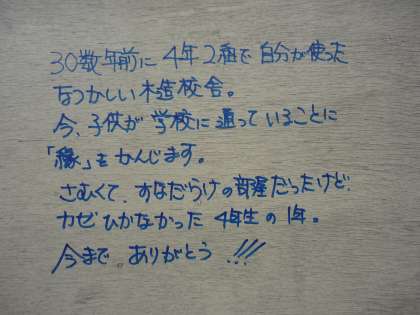 30数年前に4年2組で自分が使った
なつかしい木造校舎。
今、子供が学校に通っていることに
「縁」をかんじます。
さむくて、すなだらけの部屋だったけど、
カゼひかなかった4年生の1年。
今まで、ありがとう!!!